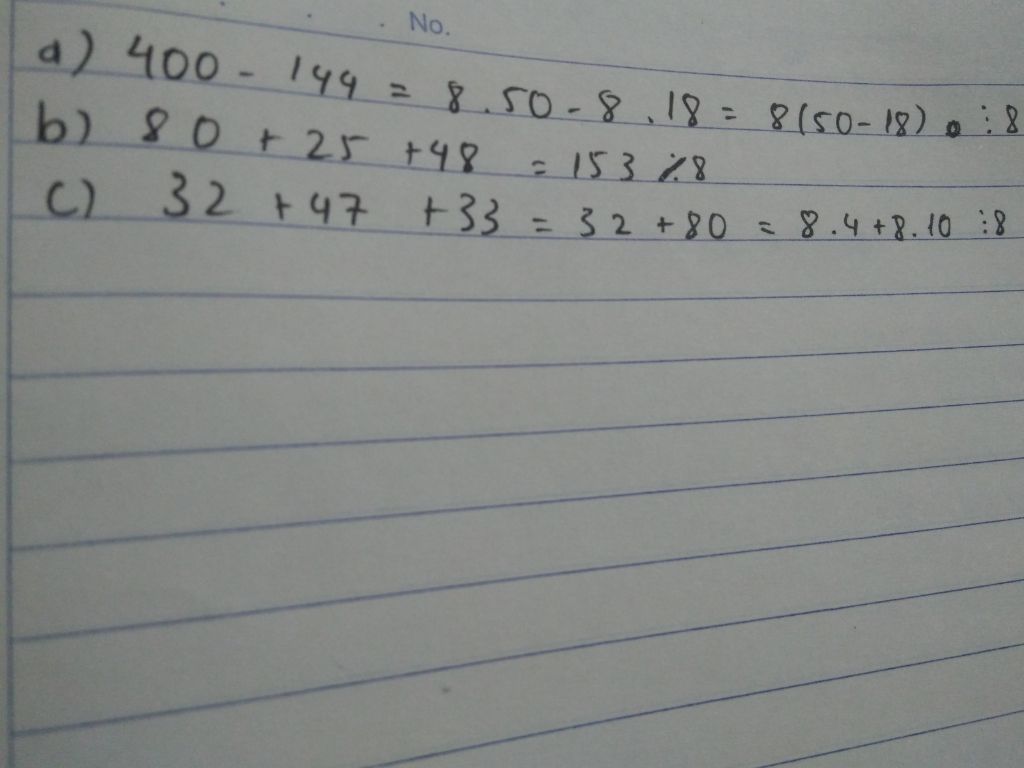 No.
a) 400 - 144 = 8.50 - 8.18 = 8(50-18) ⋮8
b) 80 + 25 + 48 = 153 ⋮̸8
c) 32 + 47 + 33 = 32 + 80 = 8.4 + 8.10 ⋮8